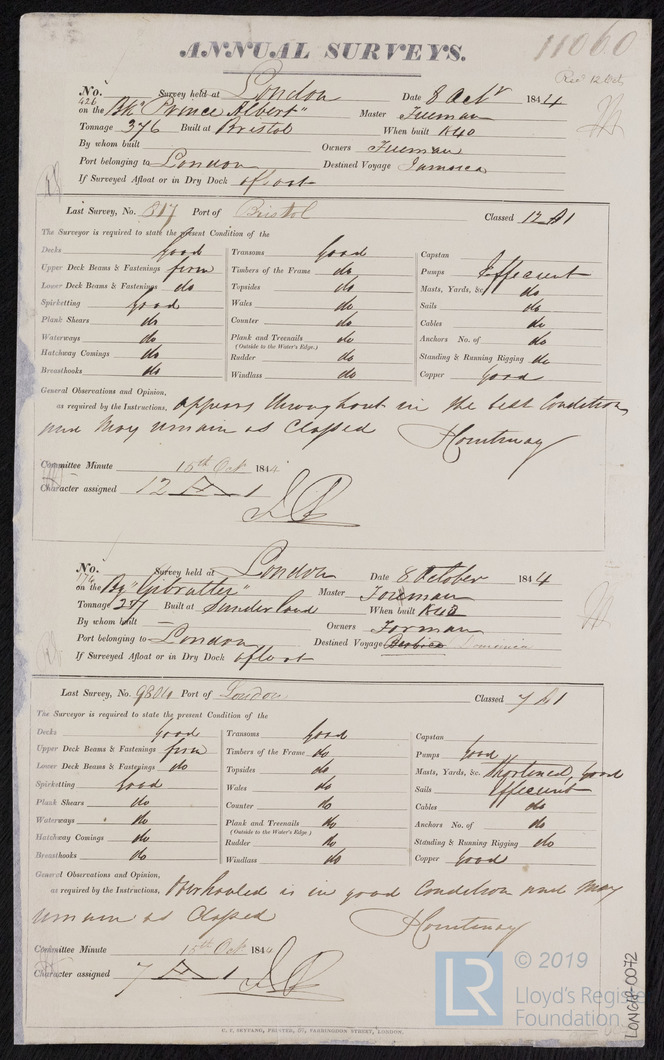 ANNUAL SURVEYS.
11060
Rec 12 Oct
No. 426 Survey held at London Date 8 Octr 1844
on the Bk "Prince Albert" Master Freeman
Tonnage 376 Built at Bristol When built 1840
By whom built Owners Freeman
Port belonging to London Destined Voyage Jamaica
If Surveyed Afloat or in Dry Dock afloat
Last Survey, No. 817 Port of Bristol Classed 12 A1
The Surveyor is required to state the present Condition of the
Decks Good Transoms Good Capstan
Upper Deck Beams & Fastenings firm Timbers of the Frame do Pumps Efficient
Lower Deck Beams & Fastenings do Topsides do Masts, Yards, &c. do
Spirketting Good Wales do Sails do
Plank Shears do Counter do Cables do
Waterways do Plank and Treenails do Anchors No. of do
(Outside to the Water's Edge.)
Hatchway Comings do Rudder do Standing & Running Rigging do
Breasthooks do Windlass do Copper Good
General Observations and Opinion,
as required by the Instructions, appears throughout in the best Condition
and may remain as Classed Courtenay
Committee Minute 15th Oct 1844
Character assigned 12 A 1
No. Survey held at London Date 8 October 1844
on the Bg "Gibralter" Master Foreman
Tonnage 247 Built at Sunderland When built 1840
By whom built — Owners Forman
Port belonging to London Destined Voyage Berbice
If Surveyed Afloat or in Dry Dock afloat
Last Survey, No. 9804 Port of London Classed 7 A1
The Surveyor is required to state the present Condition of the
Decks Good Transoms Good Capstan
Upper Deck Beams & Fastenings firm Timbers of the Frame do Pumps Good
Lower Deck Beams & Fastenings do Topsides do Masts, Yards, &c. Shortened, Good
Spirketting Good Wales do Sails Efficient
Plank Shears do Counter do Cables do
Waterways do Plank and Treenails do Anchors No. of do
(Outside to the Water's Edge.)
Hatchway Comings do Rudder do Standing & Running Rigging do
Breasthooks do Windlass do Copper Good
General Observations and Opinion,
as required by the Instructions, Overhauled is in good Condition and may
remain as Classed Courtenay
Committee Minute 15th Oct 1844
Character assigned 7 A 1
LR © 2019
Lloyd's Register
Foundation
LON618-0072